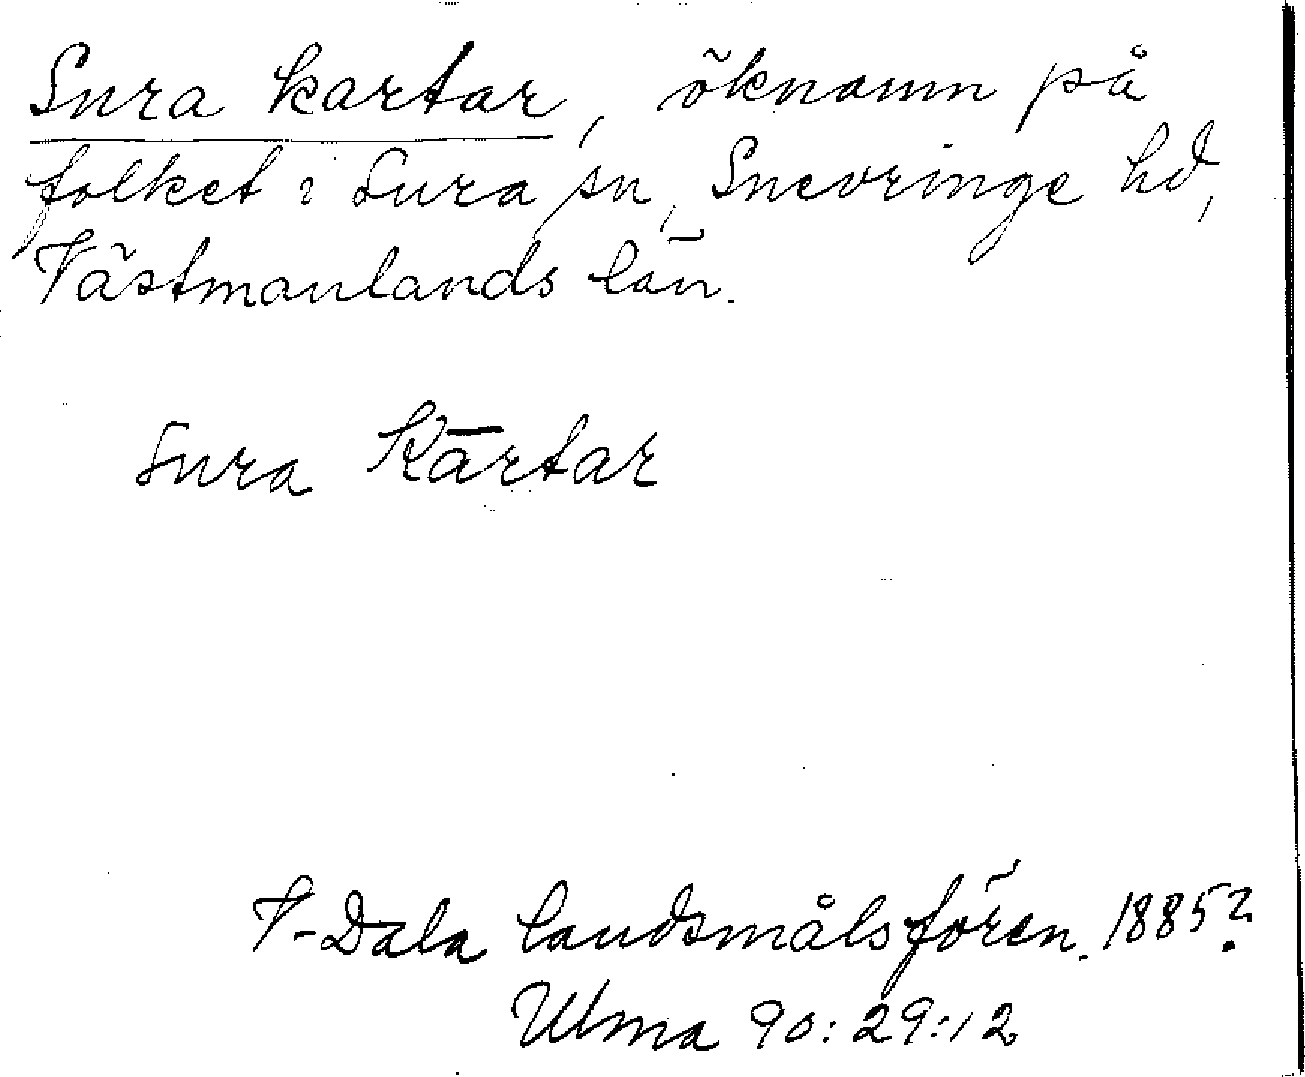 Sura kartar, öknamn på
folket i Sura sn, Snevringe hd,
Västmanlands län.
Sura Kārtar
V-Dala landsmålsfören. 1885?
Ulma 90:29:12